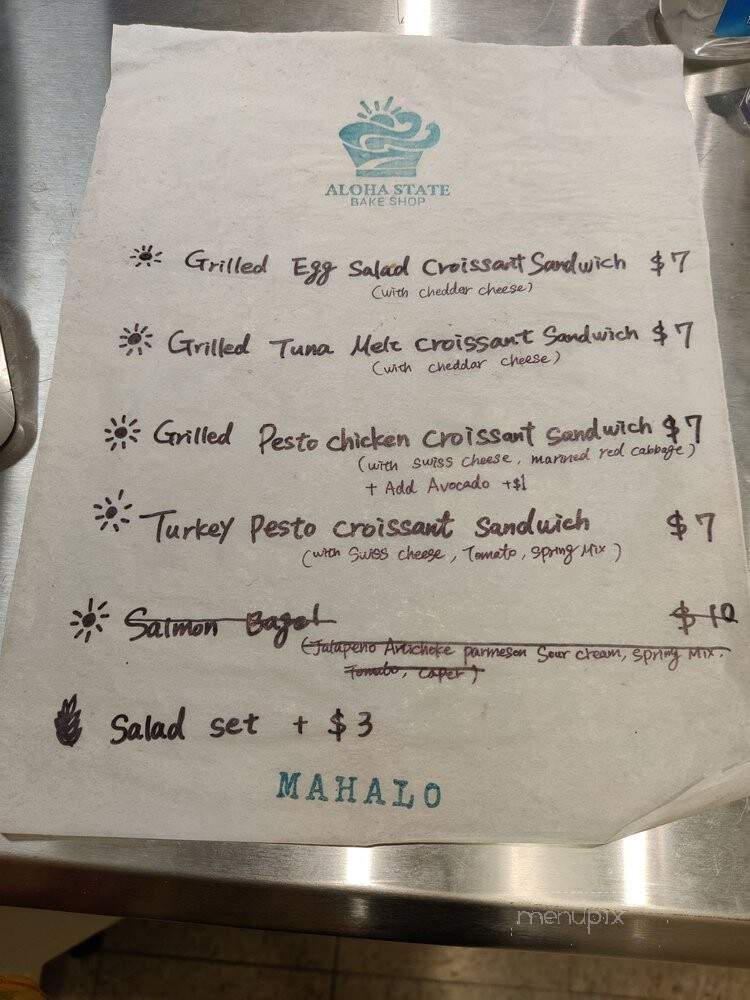 ALOHA STATE
BAKE SHOP
Grilled Egg Salad Croissant Sandwich $7
(with cheddar cheese)
Grilled Tuna Melt Croissant Sandwich $7
(with cheddar cheese)
Grilled Pesto chicken Croissant Sandwich $7
(with swiss cheese, marined red cabbage)
+ Add Avocado +$1
Turkey Pesto Croissant Sandwich $7
(with Swiss cheese, Tomato, Spring Mix)
Salmon Bagel $10
(Jalapeno Artichoke parmesen Sour cream, Spring Mix,
Tomato, caper)
Salad set + $3
MAHALO
menupix